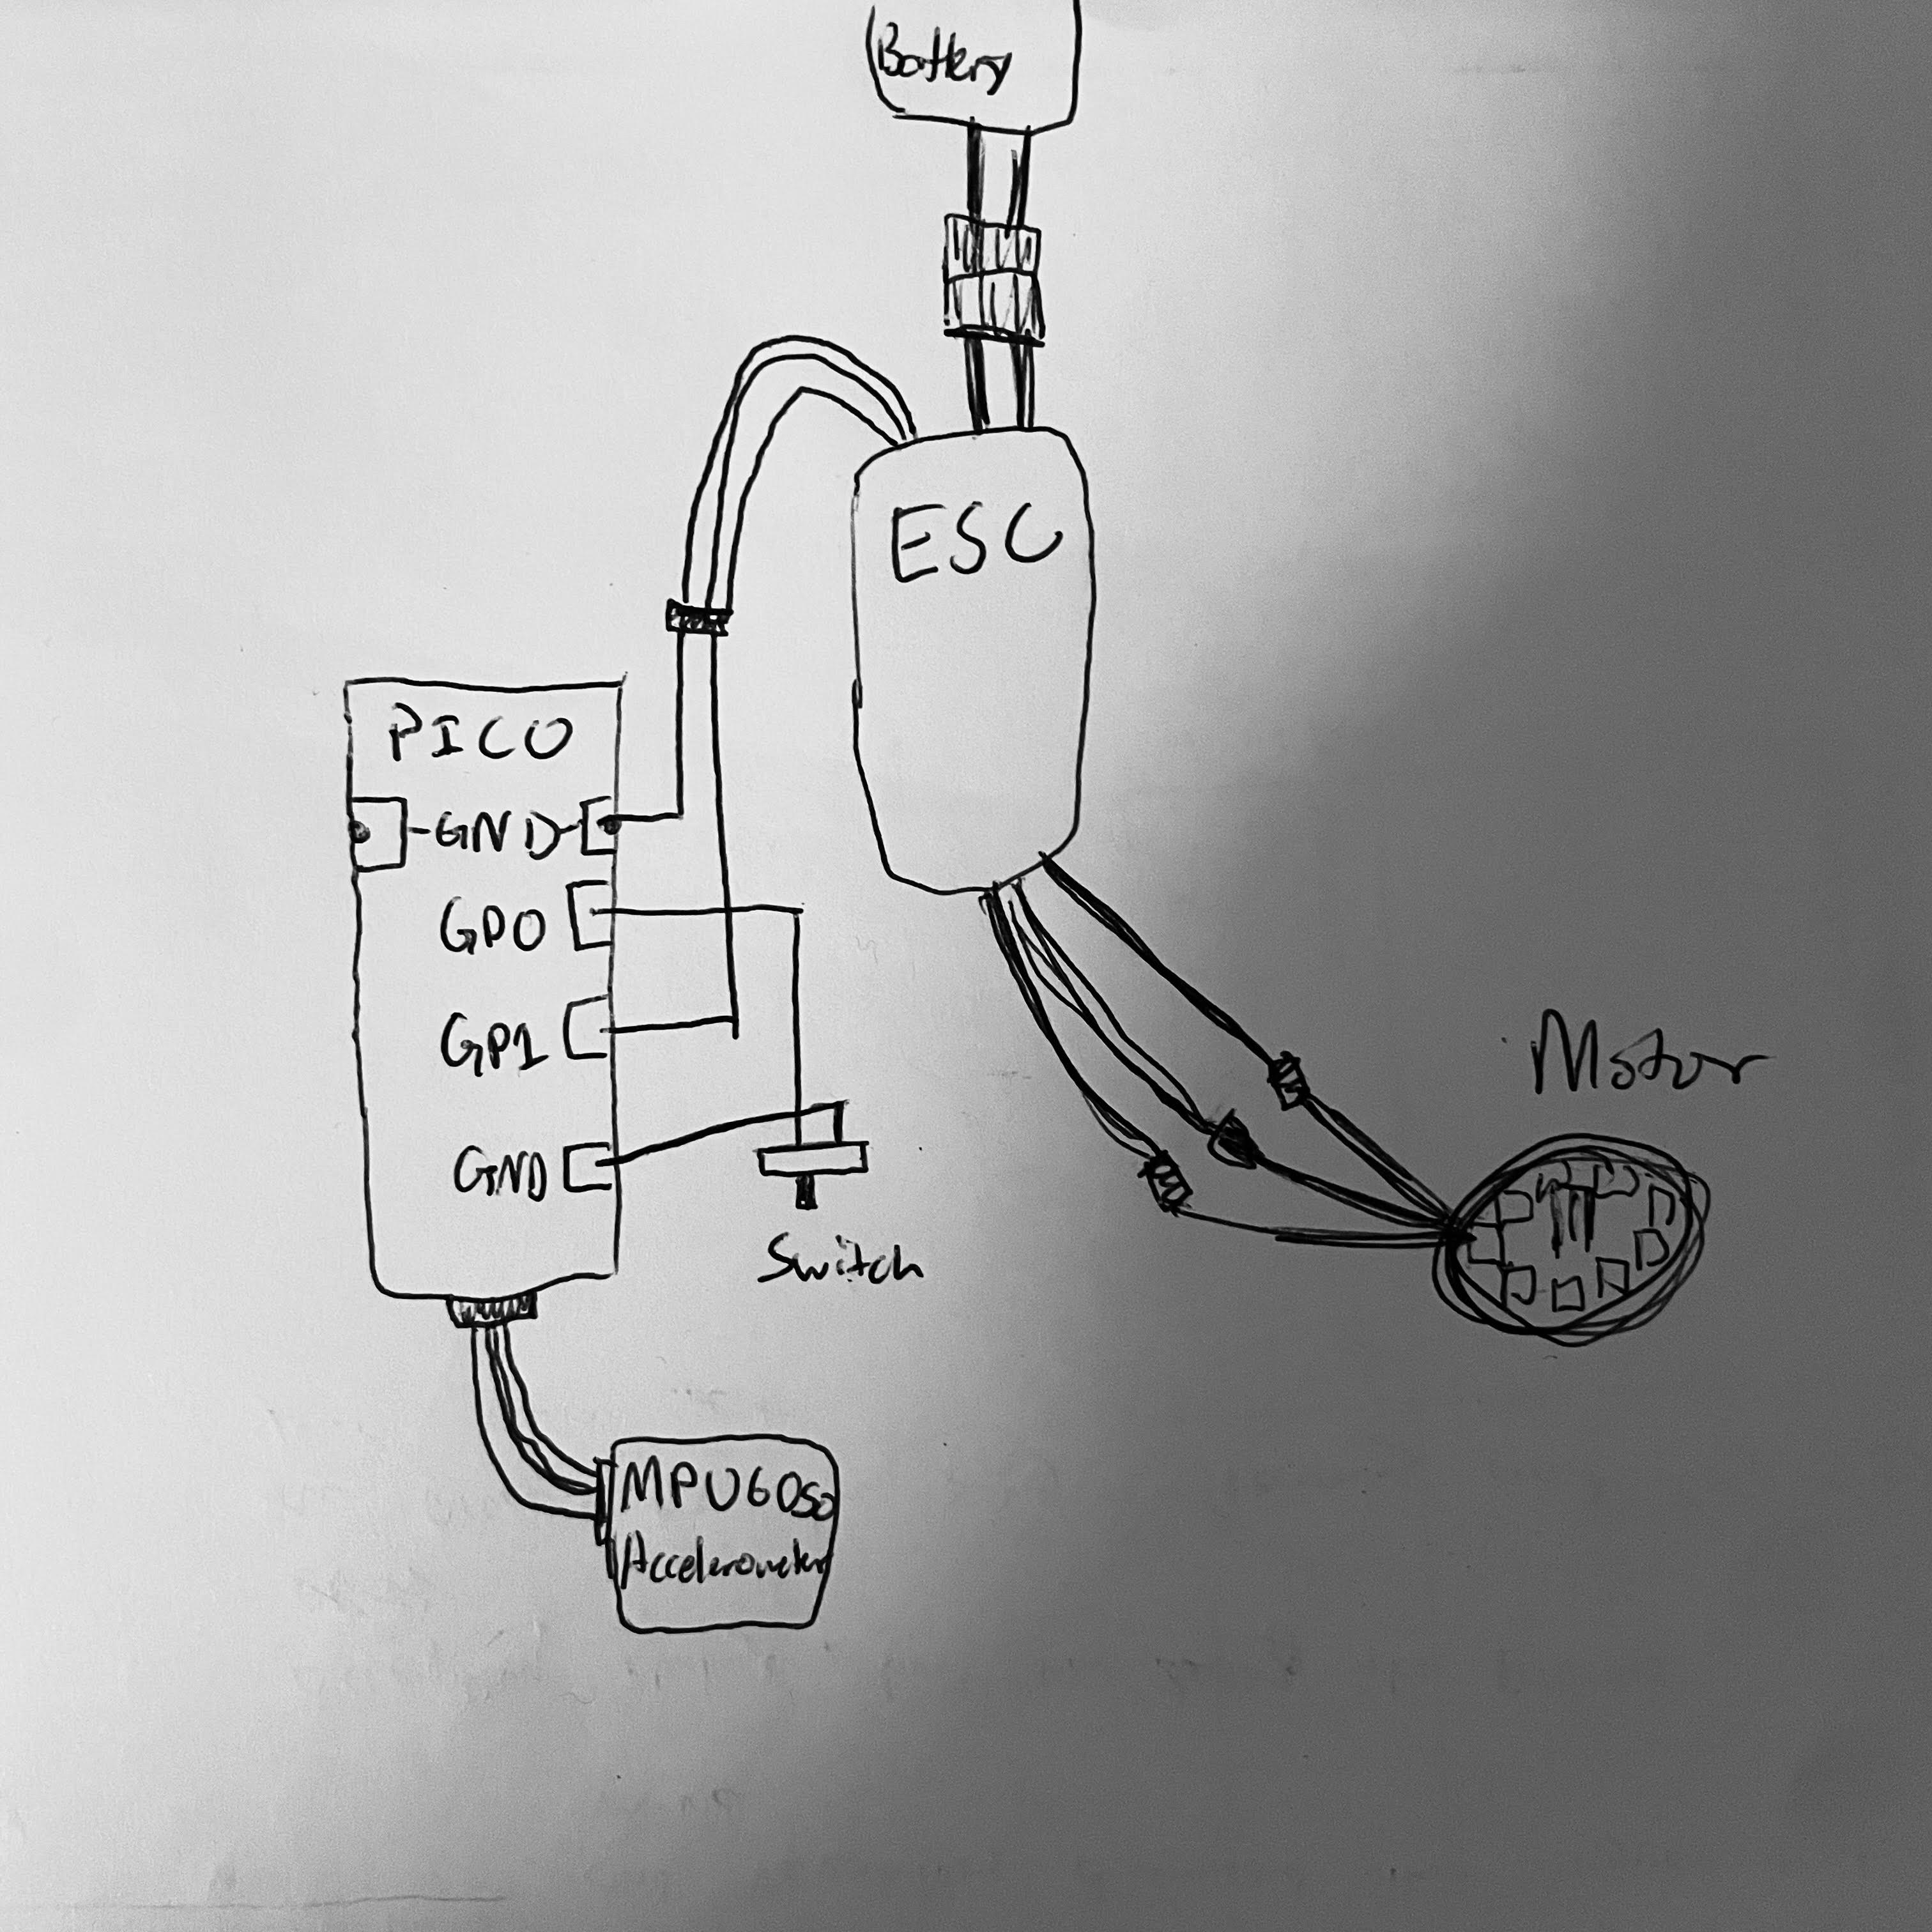 Battery
ESC
PICO
GND
GP0
GP1
GND
Switch
Motor
MPU6050
Accelerometer